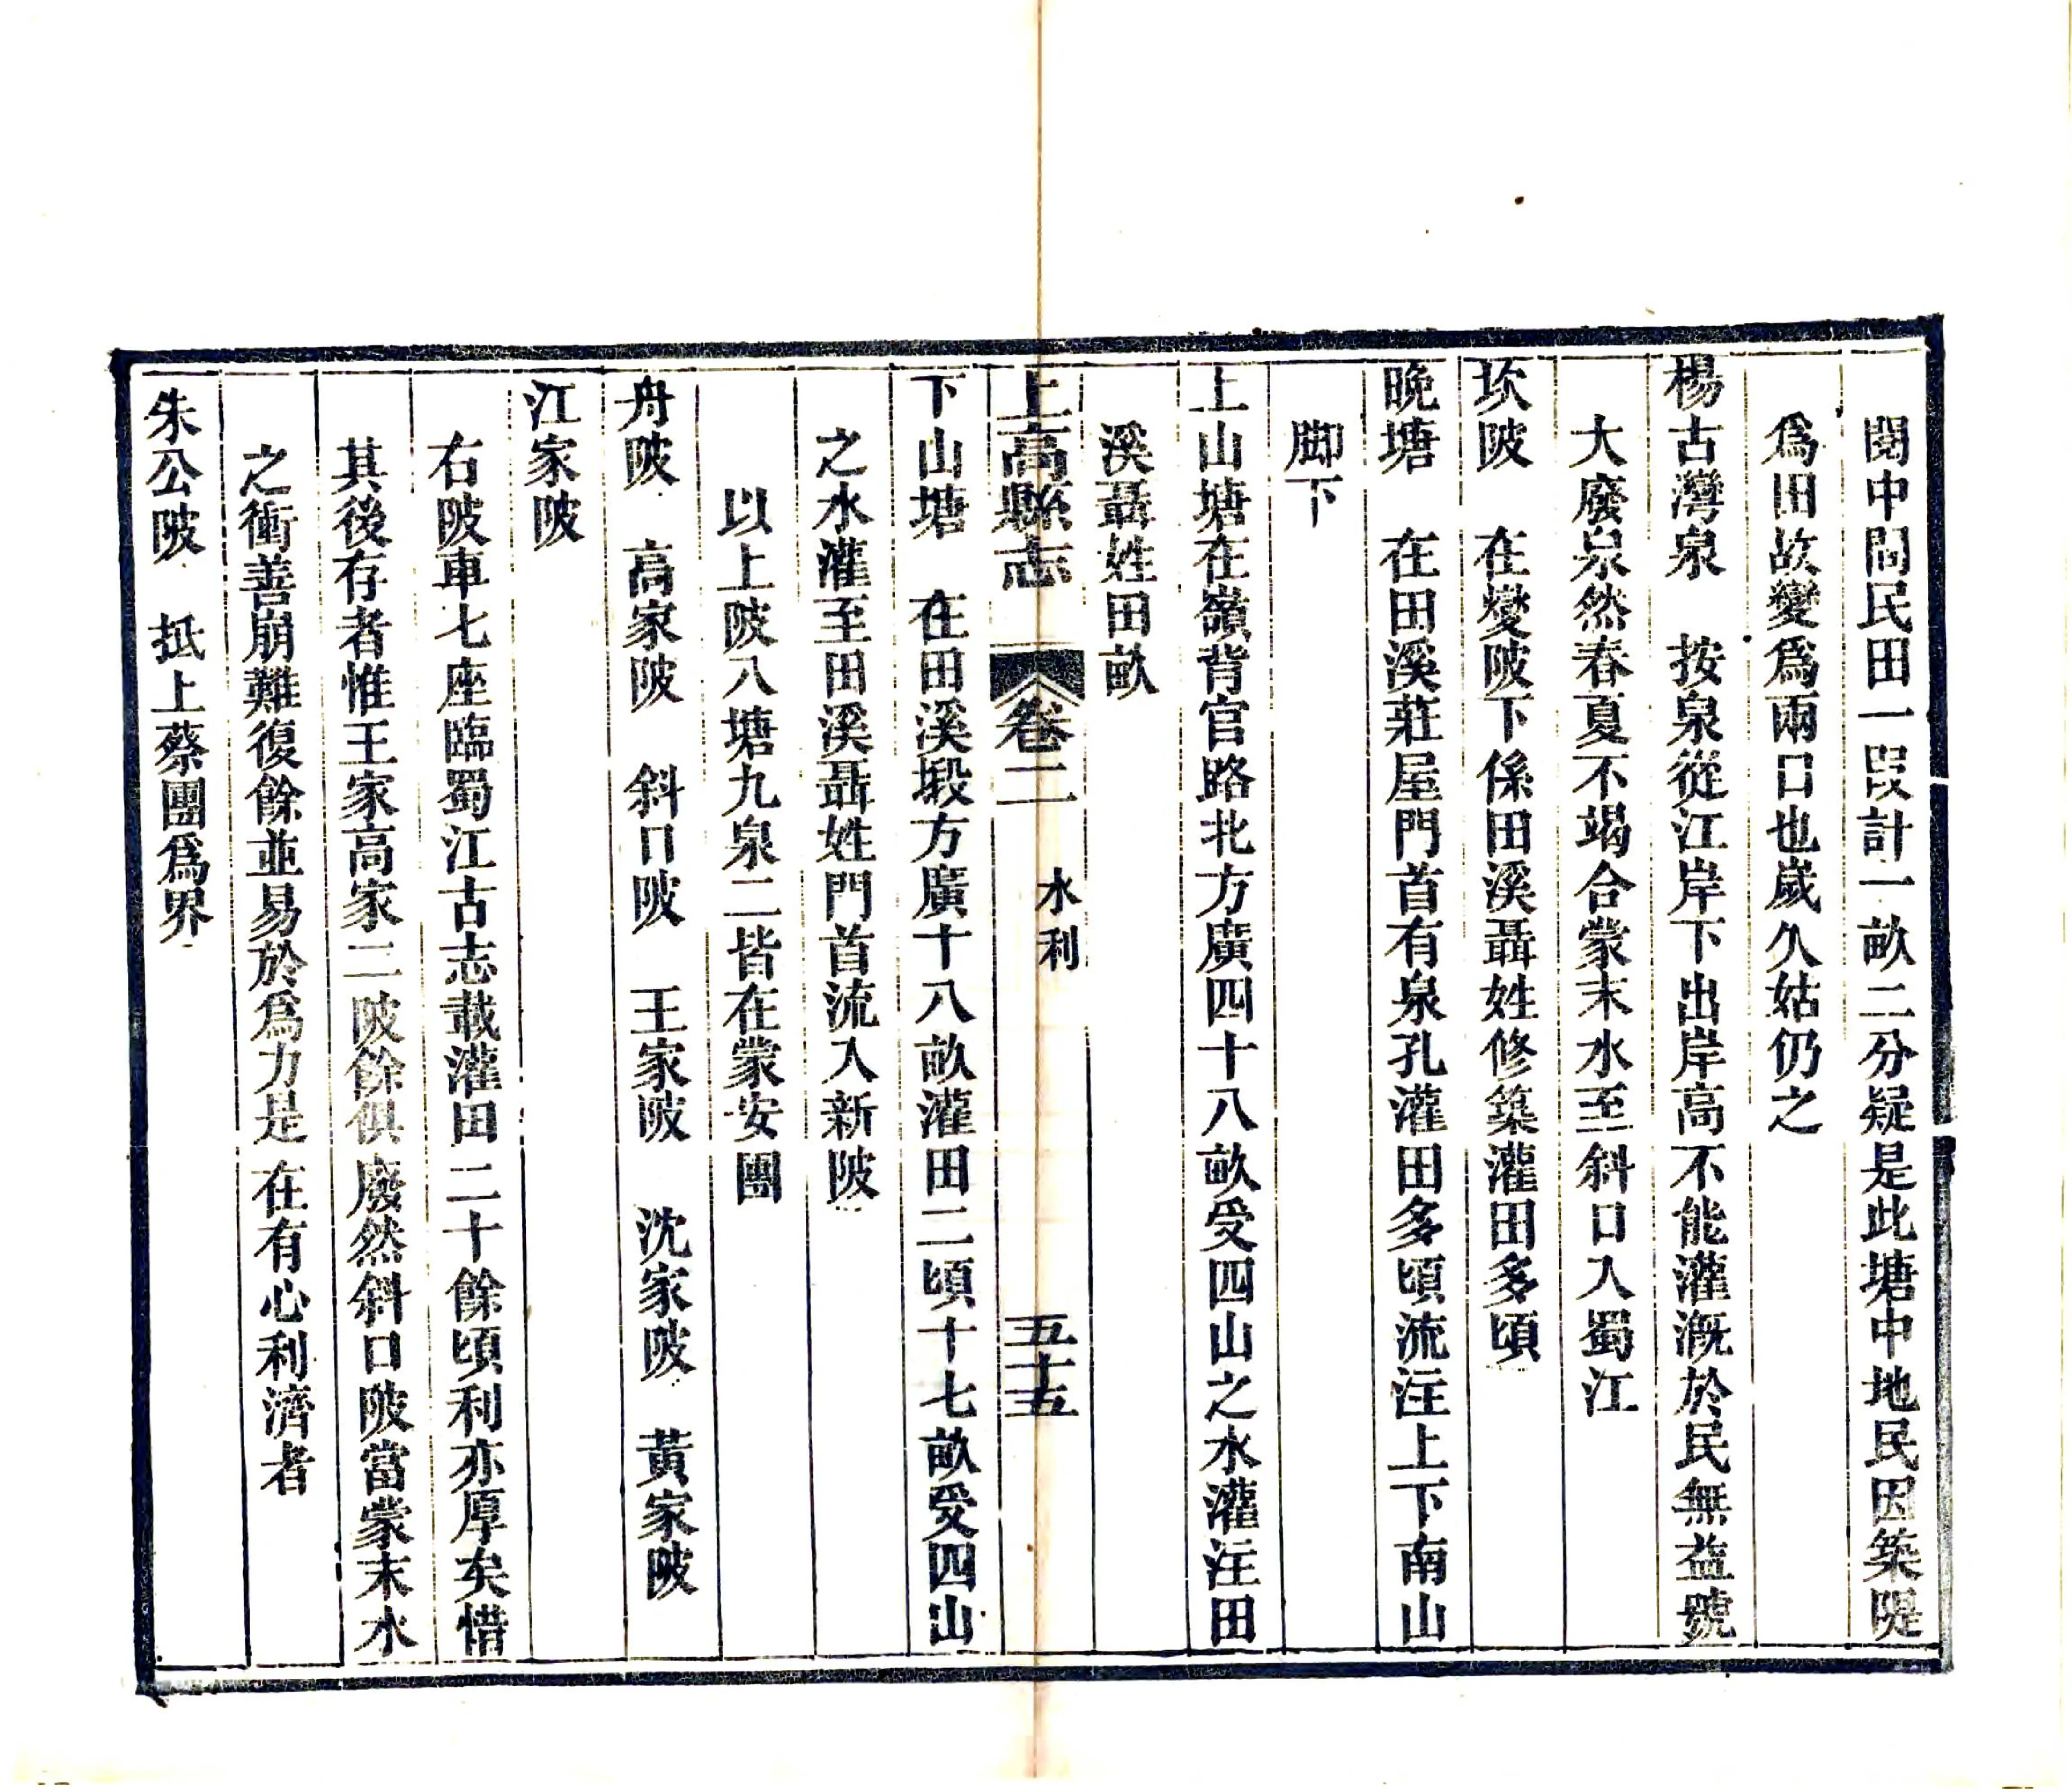 閱中間民田一段計一畝二分疑是此塘中地民因築隄
爲田故變爲兩口也歲久姑仍之
楊古灣泉　按泉從江岸下出岸高不能灌漑於民無益號
大廢泉然春夏不竭合蒙末水至斜口入蜀江
坎陂　在燮陂下係田溪聶姓修築灌田多頃
晚塘　在田溪莊屋門首有泉孔灌田多頃流注上下南山
脚下
上山塘在嶺背官路北方廣四十八畝受四山之水灌注田
溪聶姓田畝
上高縣志　卷二　水利　五十五
下山塘　在田溪塅方廣十八畝灌田二頃十七畝受四山
之水灌至田溪聶姓門首流入新陂
以上陂八塘九泉二皆在蒙安團
舟陂　高家陂　斜口陂　王家陂　沈家陂　黃家陂
江家陂
右陂車七座臨蜀江古志載灌田二十餘頃利亦厚矣惜
其後存者惟王家高家二陂餘俱廢然斜口陂當蒙末水
之衝善崩難復餘並易於爲力是在有心利濟者
朱公陂　抵上蔡團爲界